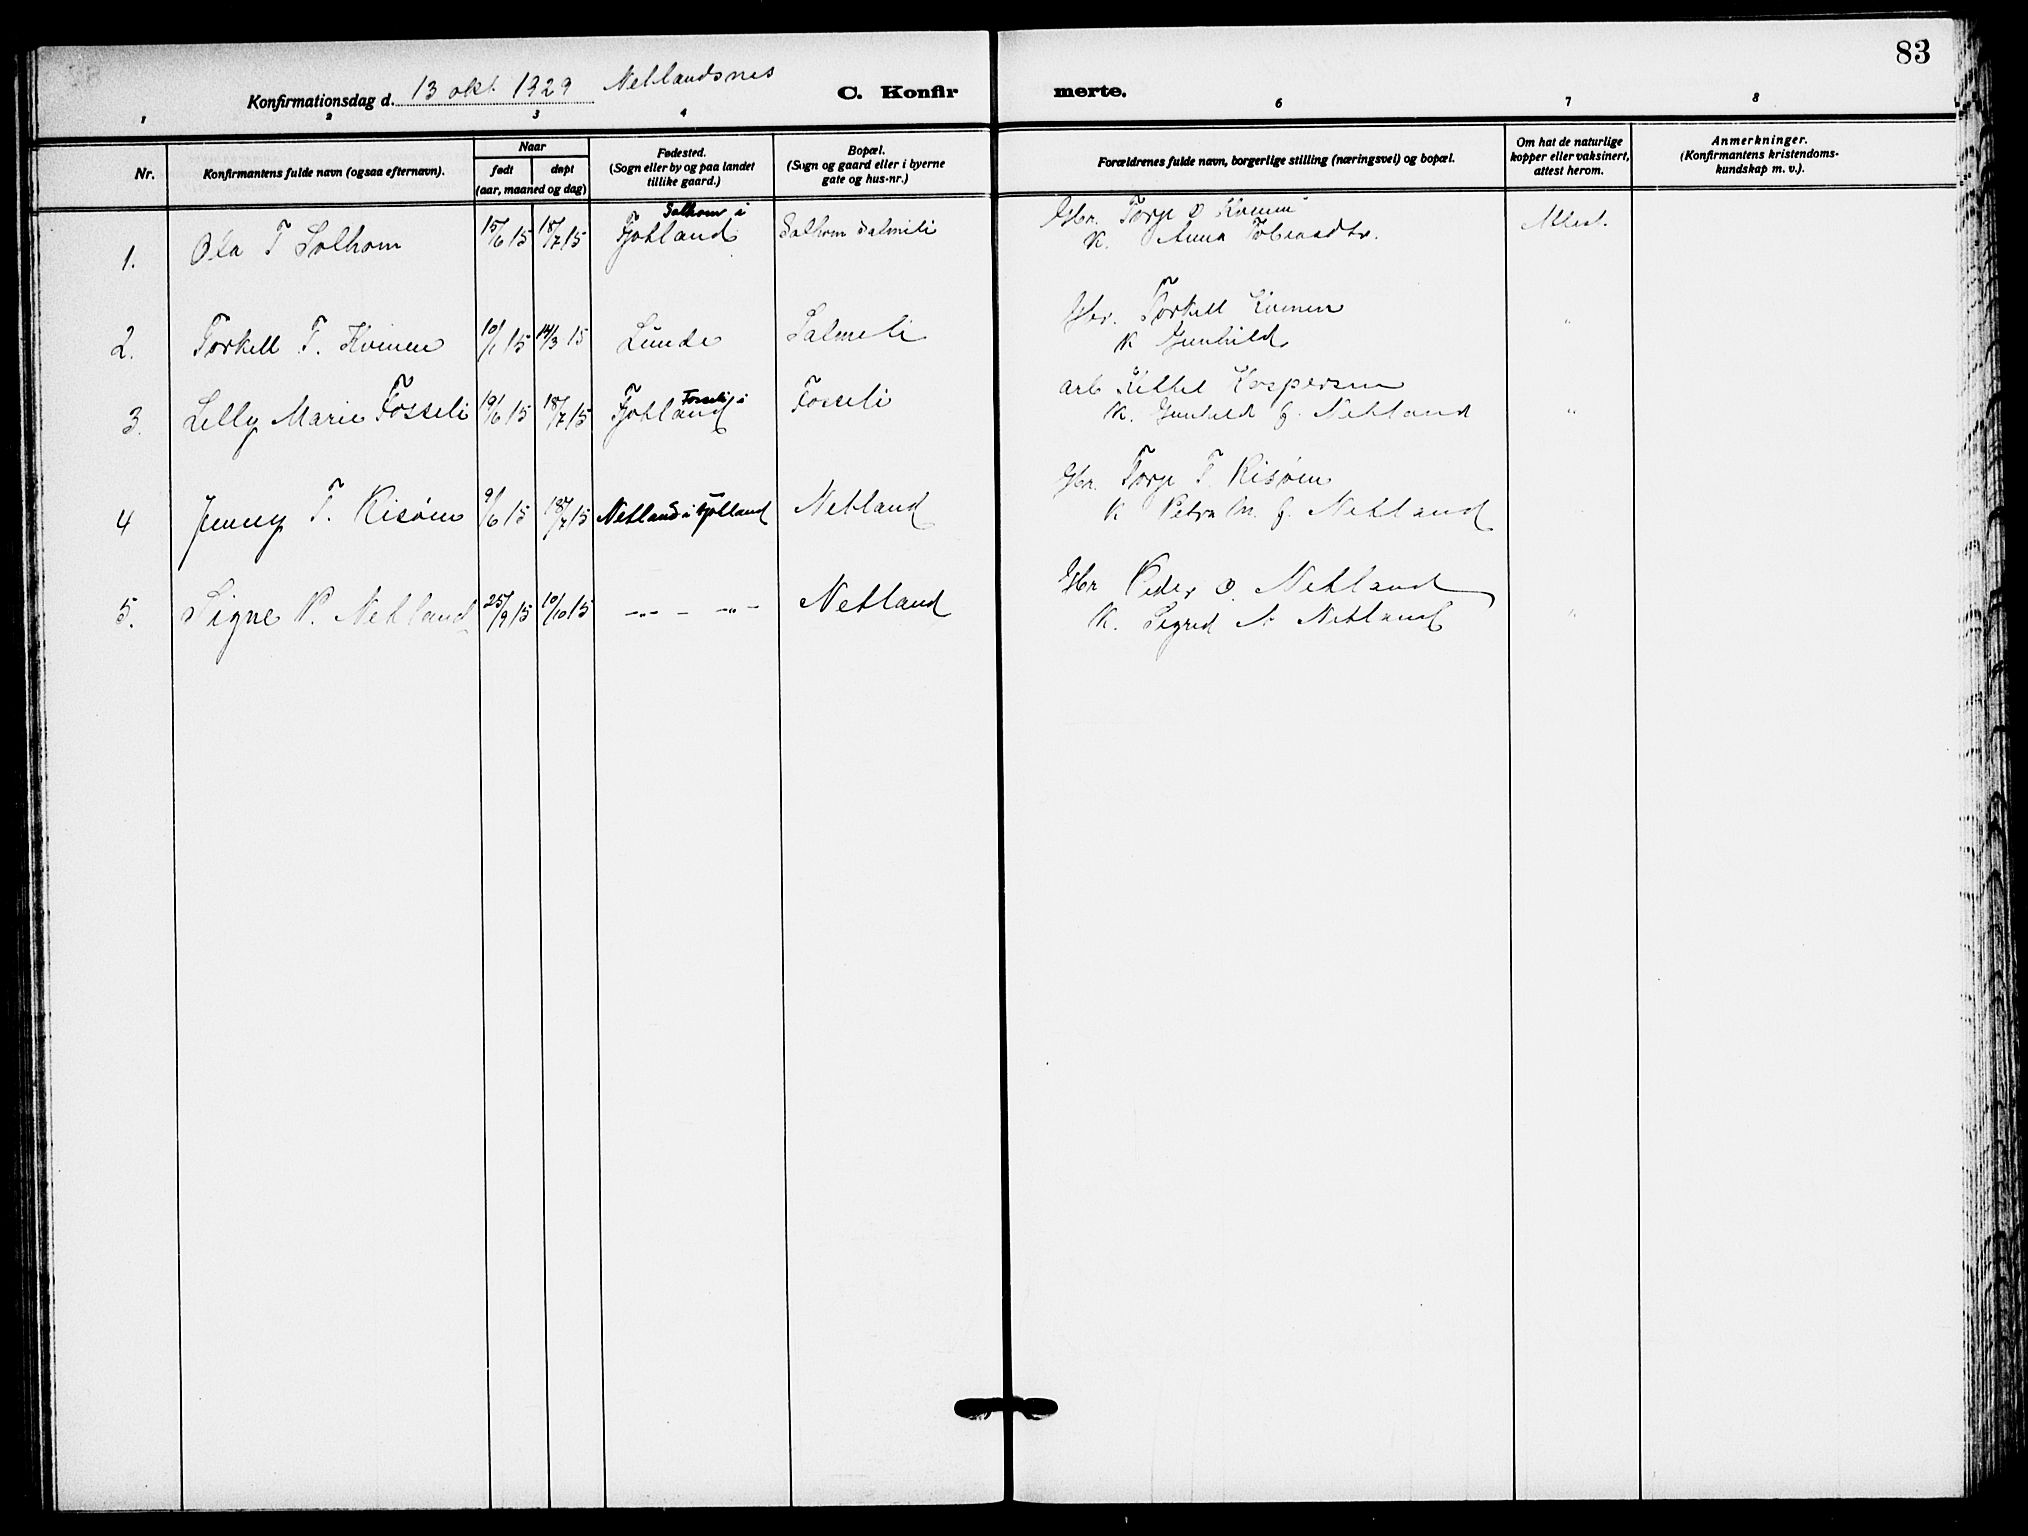 83
Konfirmationsdag d. 13 okt. 1929 Netlandsnes
C. Konfir merte.
1 2 3 4 6 7 8
Nr.
Konfirmantens fulde navn (ogsaa efternavn).
Naar
født døpt
(aar, maaned og dag)
Fødested.
(Sogn eller by og paa landet
tillike gaard.)
Bopæl.
(Sogn og gaard eller i byerne
gate og hus-nr.)
Forældrenes fulde navn, borgerlige stilling (næringsvei) og bopæl.
Om hat de naturlige
kopper eller vaksinert,
attest herom.
Anmerkninger.
(Konfirmantens kristendoms-
kundskap m. v.).
Solhom i
1. Ola T Solhom 15/6 15 18/7 15 Fjotland Solhom Salmeli Gbr. Torje O Kvinen Attest.
K. Anna
2. Torkell T. Kvinen 10/1 15 14/3 15 Lunde Salmeli Gbr. Torkell Kvinen "
K Gunhild
Fosseli i
3. Lelly Marie Fosseli 19/6 15 18/7 15 Fjotland Fosseli arb Kittel Kaspersen
K. Gunhild f. Netland "
4 Jenny T. Risøen 9/6 15 18/7 15 Netland i Fjotland Netland Gbr. Torje T. Risøen
K Petra M. f. Netland "
5. Signe P. Netland 25/9 15 10/10 15 -"- - -"- Netland Gbr Peder O. Netland
K. Sigrid A. Netland "